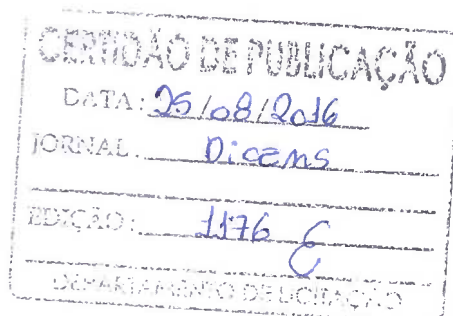 CERTIDÃO DE PUBLICAÇÃO
DATA: 25/08/2016
JORNAL: Dicems
EDIÇÃO: 1176
DEPARTAMENTO DE LICITAÇÃO